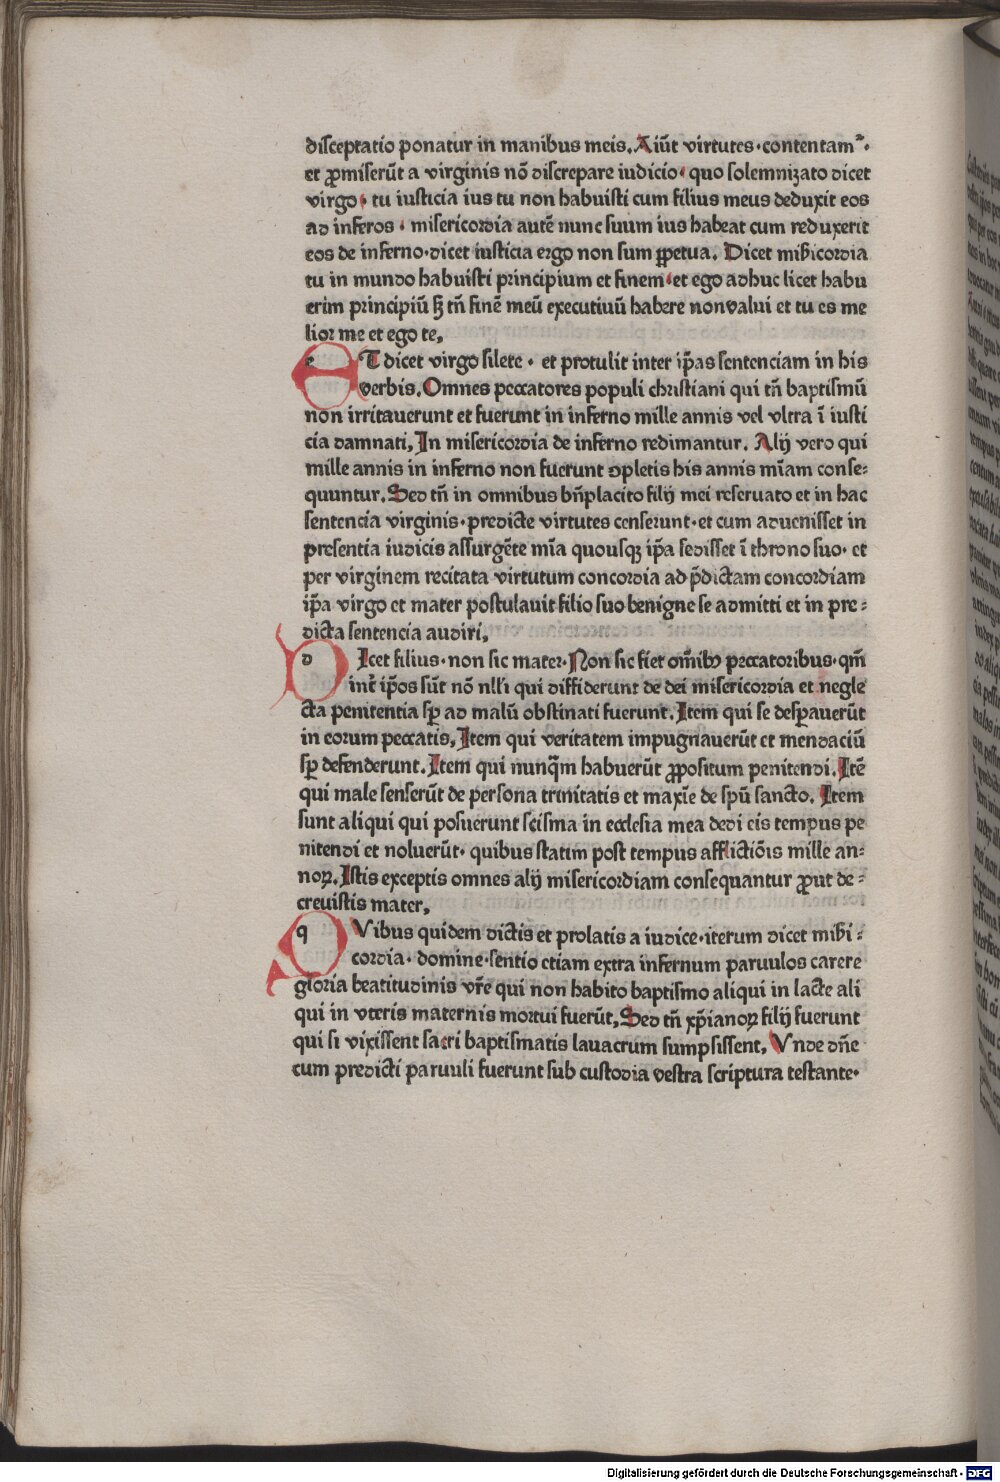 disceptatio ponatur in manibus meis. Aiūt virtutes · contentam² ·
et ꝓmiserūt a virginis nō discrepare iudicio · quo solemnizato dicet
virgo · tu iusticia ius tu non habuisti cum filius meus deduxit eos
ad inferos · misericordia autē nunc suum ius habeat cum reduxerit
eos de inferno · dicet iusticia ergo non sum ꝑpetua. Dicet mi̅icordia
tu in mundo habuisti principium et finem · et ego adhuc licet habu
erim principiū sꝫ tn̄ finē meū executiuū habere non valui et tu es me
lior me et ego te,
e T dicet virgo silete · et protulit inter ip̄as sentenciam in his
verbis. Omnes peccatores populi christiani qui tn̄ baptismū
non irritauerunt et fuerunt in inferno mille annis vel vltra ī iusti
cia damnati, In misericordia de inferno redimantur. Alij vero qui
mille annis in inferno non fuerunt ꝯpletis his annis mīam conse⸗
quuntur. Sed tn̄ in omnibus bn̄placito filij mei reseruato et in hac
sentencia virginis · predicte virtutes censerunt · et cum aduenisset in
presentia iudicis assurgēte mīa quousqꝫ ip̄a sedisset ī throno suo · et
per virginem recitata virtutum concordia ad p̄dictam concordiam
ip̄a virgo et mater postulauit filio suo benigne se admitti et in pre⸗
dicta sentencia audiri,
d Icet filius · non sic mater · Non sic fiet om̄ibꝫ peccatoribus · qm̄
int̄ ip̄os sūt nō nll'i qui diffiderunt de dei misericordia et negle
cta penitentia sꝑ ad malū obstinati fuerunt. Item qui se desꝑauerūt
in eorum peccatis, Item qui veritatem impugnauerūt et mendaciū
sꝑ defenderunt. Item qui nunq̄m habuerūt ꝓpositum penitendi. Itē
qui male senserūt de persona trinitatis et maxīe de spū sancto. Item
sunt aliqui qui posuerunt scisma in ecclesia mea dedi eis tempus pe
nitendi et noluerūt · quibus statim post tempus afflictiōis mille an⸗
noꝝ. Istis exceptis omnes alij misericordiam consequantur ꝓut de⸗
creuistis mater,
q Vibus quidem dictis et prolatis a iudice · iterum dicet mi̅i⸗
cordia · domine · sentio etiam extra infernum paruulos carere
gloria beatitudinis vr̄e qui non habito baptismo aliqui in lacte ali
qui in vteris maternis mortui fuerūt, Sed tn̄ xp̄ianoꝝ filij fuerunt
qui si vixissent sacri baptismatis lauacrum sumpsissent, Vnde dn̄e
cum predicti paruuli fuerunt sub custodia vestra scriptura testante ·
Digitalisierung gefördert durch die Deutsche Forschungsgemeinschaft · DFG